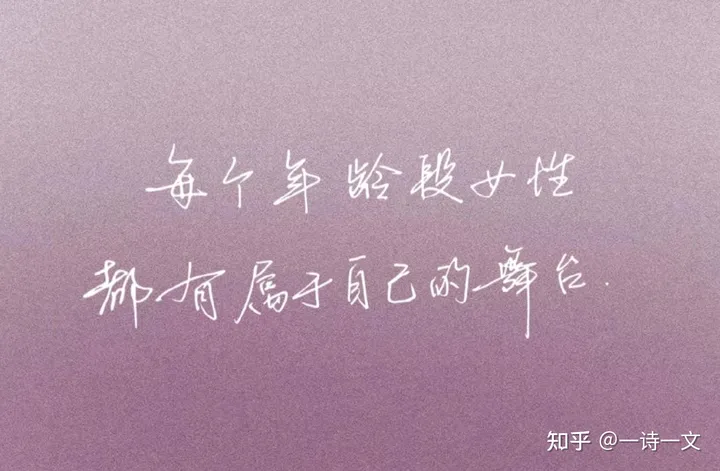 每个年龄段女性
都有属于自己的舞台.
知乎 @一诗一文